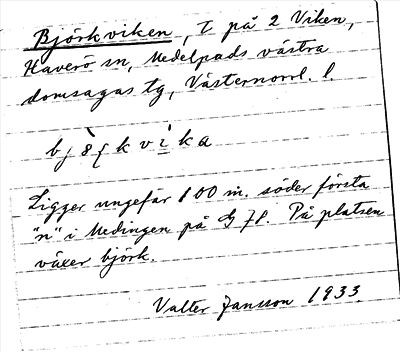 Björkviken, T på 2 Viken,
Haverö sn, Medelpads västra
domsagas tg, Västernorrl. l.
Ligger ungefär 100 m. söder första
"n" i Medingen på G 71. På platsen
växer björk.
Valter Jansson 1933.